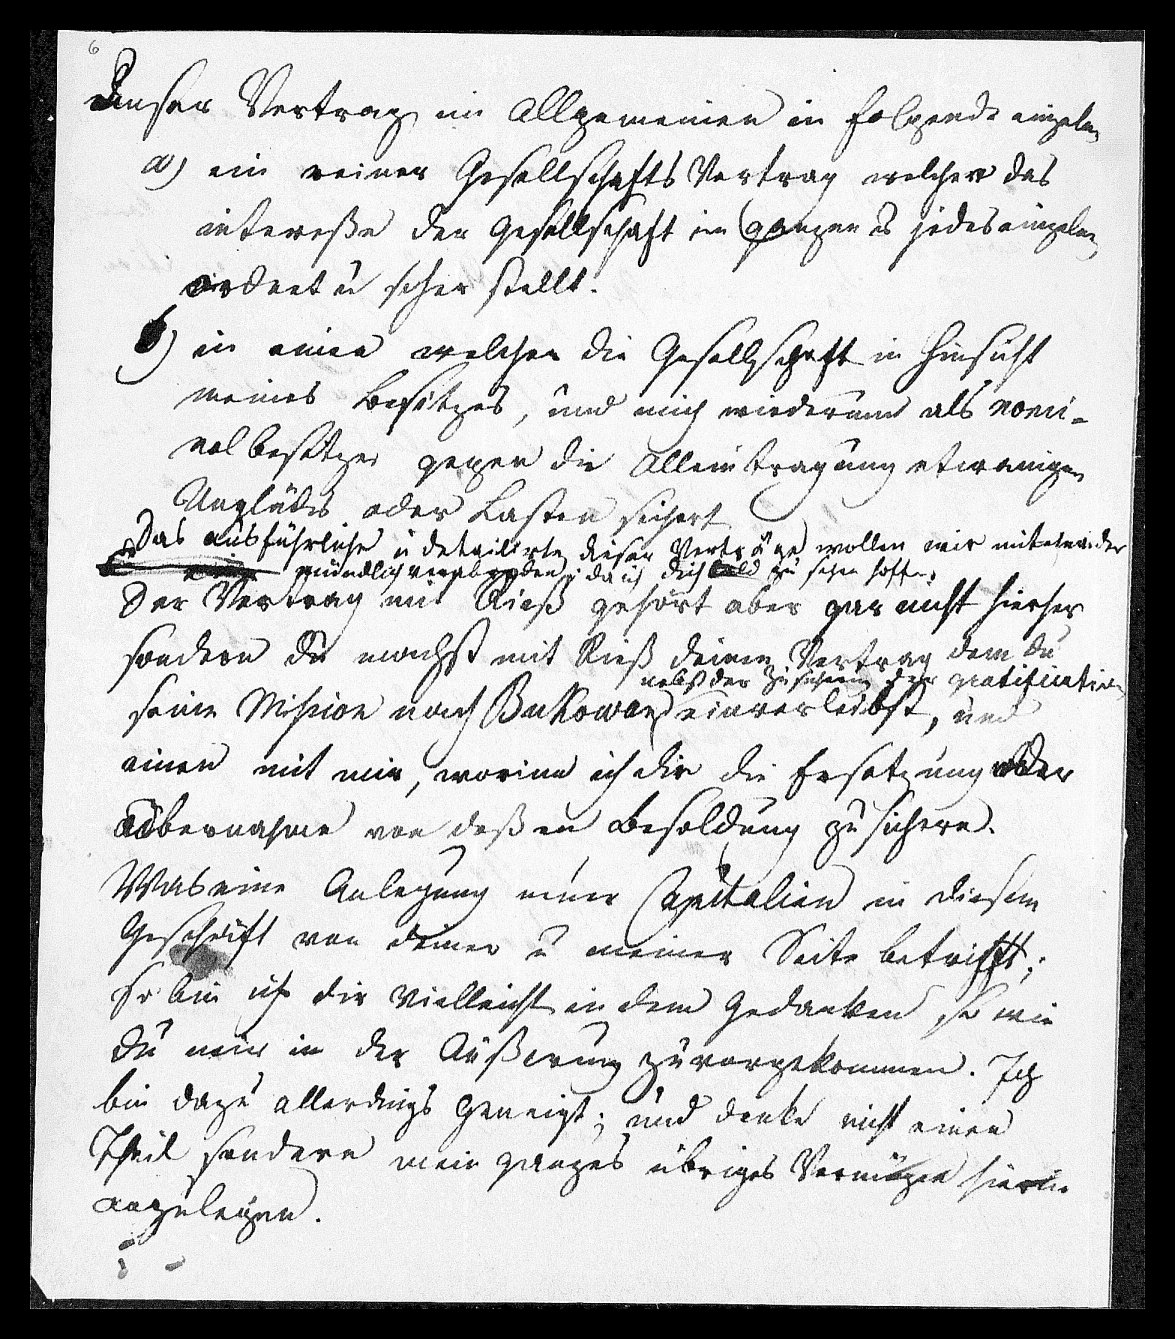 6
Unser Vertrag im Allgemeinen in folgende einzelne
a) ein reiner Gesellschafts Vertrag welcher das
intereße der Gesellschaft im ganzen u jedes einzelne
ordnet u sicher stellt.
b) in einen welcher die Gesellschaft in Hinsicht
meines Besitzes, und mich wiederum als nomi-
nal besitzer gegen die Alleintragung etwaniger
Unglücks oder Lasten sichert
Das ausführliche u detailirte dieser Verträge wollen wir miteinander
mündlich verabreden, da ich dich bald zu sehen hoffe.
Der Vertrag mit Rieß gehört aber gar nicht hierher
sondern du machst mit Rieß deinen Vertrag dem du
nebst der Zusicherung der gratification
seine Mission nach Bukowan einverleibst, und
einen mit mir, worinn ich dir die Ersetzung oder
übernahme von deßen Besoldung zusichere.
Was eine Anlegung einer Capitalien in diesem
Geschäft von deiner u meiner Seite betrifft;
so bin ich dir vielleicht in dem Gedanken so wie
du mir in der Äußerung zuvorgekommen. Ich
bin dazu allerdings geneigt; und denke nicht einen
Theil sondern mein ganzes übriges Vermögen hierin
anzulegen.